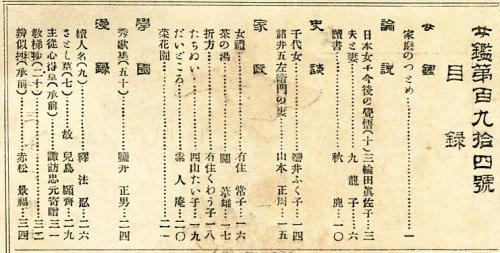 女鑑第百九拾四號
目錄
女鑑
家庭のつとめ……一
論說
日本女子今後の覺悟(十)三輪田眞佐子…三
夫と妻……九龍子…六
讀書……秋鹿…一〇
史談
千代女……櫻井ふく子…四
諸井五左衞門の妻……山本正周…一五
家政
女禮……有住常子…一六
茶の湯……關華雄…一七
折方……有住くわう子…一八
たちぬい……西山たい子…一九
だいどころ……素人庵…二〇
菜花園……二一
學園
秀歌集(五十)……井正男…二四
漫錄
續人名(九)……釋法忍…二六
さとし草(七)……故兒島願齊…二九
主從心得草(承前)……諏訪忠元寄贈…三一
數梯抄(二十)……三二
擬似抄(承前)……赤松景福…三四